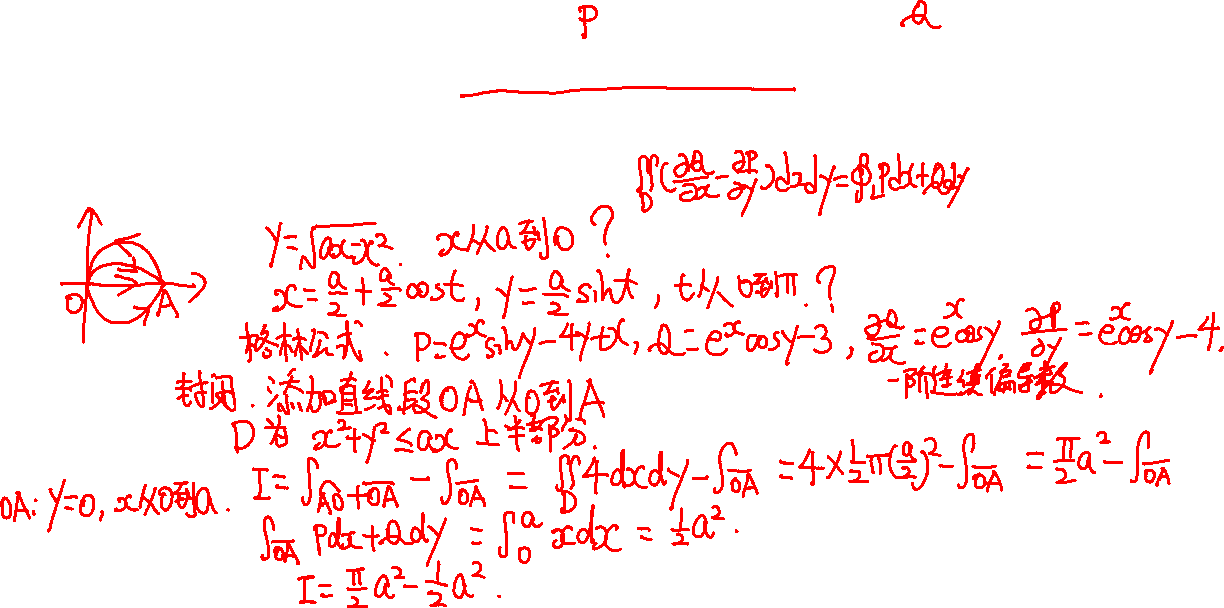 P Q
∬_D(∂Q/∂x-∂P/∂y)dxdy=∮_L Pdx+Qdy
y=√(ax-x²). x从a到0?
x=a/2+a/2cost, y=a/2sint, t从0到π.?
O A
格林公式. P=e^x siny-4y+x, Q=e^x cosy-3, ∂Q/∂x=e^x cosy, ∂P/∂y=e^x cosy-4.
一阶连续偏导数.
封闭. 添加直线段OA从O到A
D为 x²+y²≤ax 上半部分.
I=∫_{AO+OA}-∫_{OA}=∬_D 4dxdy-∫_{OA}=4×1/2π(a/2)²-∫_{OA}=π/2a²-∫_{OA}
OA: y=0, x从0到a.
∫_{OA} Pdx+Qdy=∫_0^a xdx=1/2a².
I=π/2a²-1/2a².